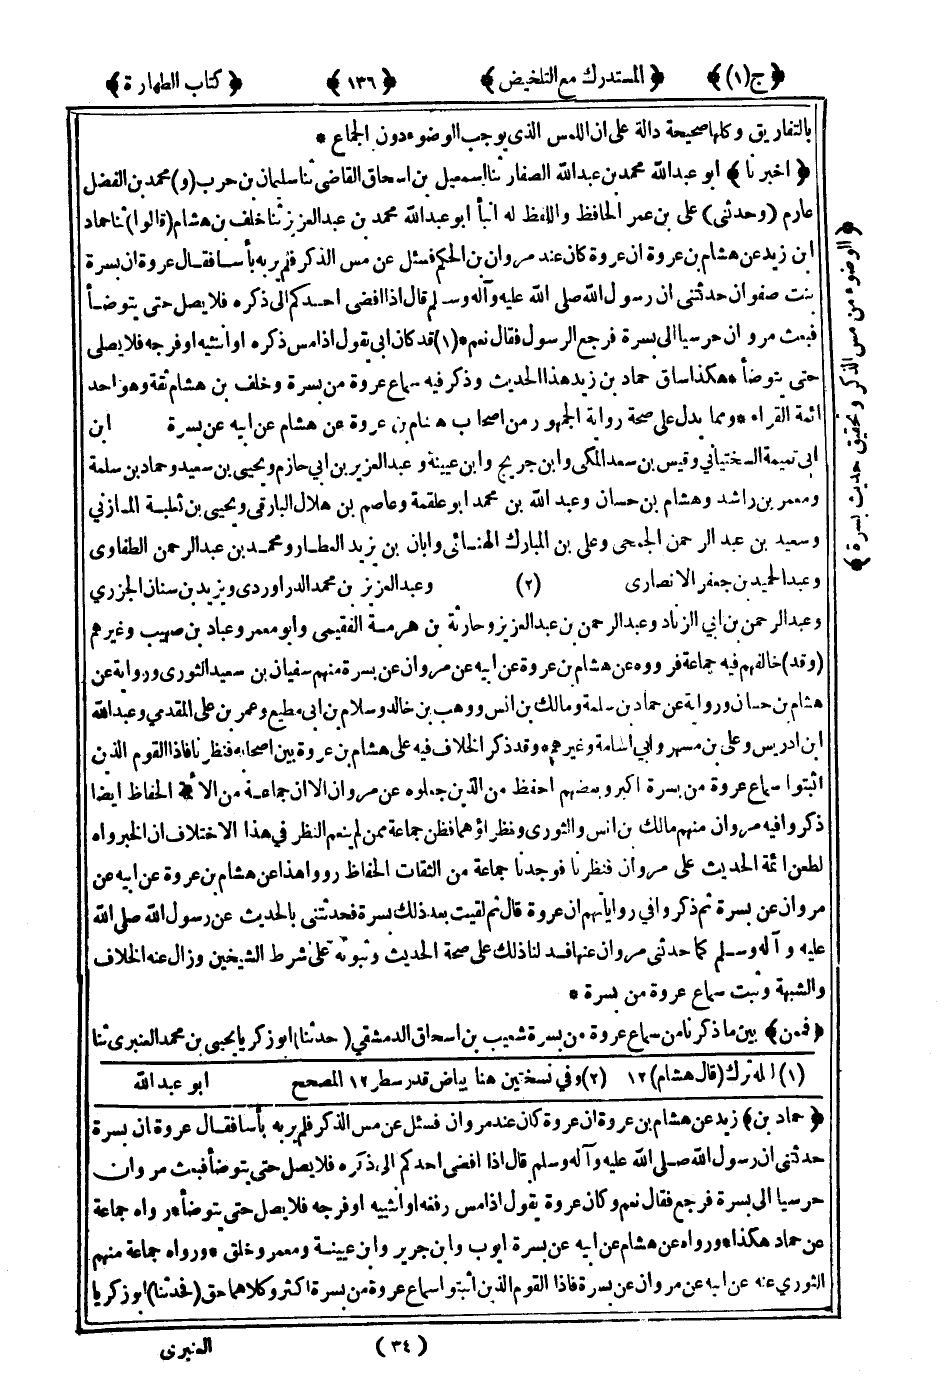 ﴿ ج (١) ﴾ ﴿ المستدرك مع التلخيص ﴾ ﴿ ١٣٦ ﴾ ﴿ كتاب الطهارة ﴾
بالتفاريق وكلها صحيحة دالة على ان اللمس الذى يوجب الوضوء دون الجماع *
﴿ اخبرنا ﴾ ابو عبدالله محمد بن عبدالله الصفار ثنا اسمعيل بن اسحاق القاضى ثنا سليمان بن حرب (و) محمد بن الفضل
عارم (وحدثنى) على بن عمر الحافظ واللفظ له انبأ ابو عبدالله محمد بن عبدالعزيز ثنا خلف بن هشام (قالوا) ثنا حماد
ابن زيد عن هشام بن عروة ان عروة كان عند مروان بن الحكم فسئل عن مس الذكر فلم ير به بأسا فقال عروة ان بسرة
بنت صفوان حدثتنى ان رسول الله صلى الله عليه وآله وسلم قال اذا افضى احدكم الى ذكره فلا يصل حتى يتوضأ
فبعث مروان حرسيا الى بسرة فرجع الرسول فقال نعم * (١) قد كان ابى يقول اذا مس ذكره او انثييه او فرجه فلا يصلى
حتى يتوضأ * هكذا ساق حماد بن زيد هذا الحديث وذكر فيه سماع عروة من بسرة وخلف بن هشام ثقة وهو احد
ائمة القراء * ومما يدل على صحة رواية الجمهور من اصحاب هشام بن عروة عن هشام عن ابيه عن بسرة ابن
ابى تميمة السختيانى وقيس بن سعد المكى وابن جريج وابن عيينة وعبد العزيز بن ابى حازم ويحيى بن سعيد وحماد بن سلمة
ومعمر بن راشد وهشام بن حسان وعبد الله بن محمد ابو علقمة وعاصم بن هلال البارقى ويحيى بن ثعلبة المازني
وسعيد بن عبد الرحمن الجمحى وعلى بن المبارك الهنائى وابان بن يزيد العطار ومحمد بن عبد الرحمن الطفاوى
وعبد الحميد بن جعفر الانصارى (٢) وعبد العزيز بن محمد الدراوردى ويزيد بن سنان الجزري
وعبد الرحمن بن ابي الزناد وعبد الرحمن بن عبد العزيز وحارثة بن هرمة الفقيمى وابو معمر وعباد بن صهيب وغيرهم
(وقد) خالفهم فيه جماعة فرووه عن هشام بن عروة عن ابيه عن مروان عن بسرة منهم سفيان بن سعيد الثورى ورواية عن
هشام بن حسان ورواية عن حماد بن سلمة ومالك بن انس ووهب بن خالد وسلام بن ابى مطيع وعمر بن على المقدمي وعبد الله
ابن ادريس وعلى بن مسهر وابي اسامة وغيرهم * وقد ذكر الخلاف فيه على هشام بن عروة بين اصحابه فنظرنا فاذا القوم الذين
اثبتوا سماع عروة من بسرة اكبر وبعضهم احفظ من الذين جعلوه عن مروان الا ان جماعة من الحفاظ ايضا
ذكروا فيه مروان منهم مالك بن انس والثورى ونظراؤهما فظن جماعة ممن لم ينعم النظر في هذا الاختلاف ان الخبر واه
لطعن ائمة الحديث على مروان فنظرنا فوجدنا جماعة من الثقات الحفاظ رووا هذا عن هشام بن عروة عن ابيه عن
مروان عن بسرة ثم ذكروا في رواياتهم ان عروة قال ثم لقيت بعد ذلك بسرة فحدثتنى بالحديث عن رسول الله صلى الله
عليه وآله وسلم كما حدثنى مروان عنها فدلنا ذلك على صحة الحديث وثبوته على شرط الشيخين وزال عنه الخلاف
والشبهة وثبت سماع عروة من بسرة *
﴿ فممن ﴾ بين ما ذكرنا من سماع عروة من بسرة شعيب بن اسحاق الدمشقي (حدثنا) ابو زكريا يحيى بن محمد العنبرى ثنا
ابو عبد الله
(١) المترك (قال هشام) ١٢ (٢) وفي نسختين هنا بياض قدر سطر ١٢ المصحح
﴿ حماد بن ﴾ زيد عن هشام بن عروة ان عروة كان عند مروان فسئل عن مس الذكر فلم ير به بأسا فقال عروة ان بسرة
حدثتنى ان رسول الله صلى الله عليه وآله وسلم قال اذا افضى احدكم الى ذكره فلا يصل حتى يتوضأ فبعث مروان
حرسيا الى بسرة فرجع فقال نعم وكان عروة يقول اذا مس رفغه او انثييه او فرجه فلا يصل حتى يتوضأ * رواه جماعة
عن حماد هكذا * ورواه عن هشام عن ابيه عن بسرة ايوب وابن جرير وابن عيينة ومعمر وخلق * ورواه جماعة منهم
الثوري عنه عن ابيه عن مروان عن بسرة فاذا القوم الذين اثبتوا سماع عروة من بسرة اكثر وكلاهما حق (فحدثنا) ابو زكريا
(٣٤) العنبرى
﴿ الوضوء من مس الذكر وتحقيق حديث بسرة ﴾